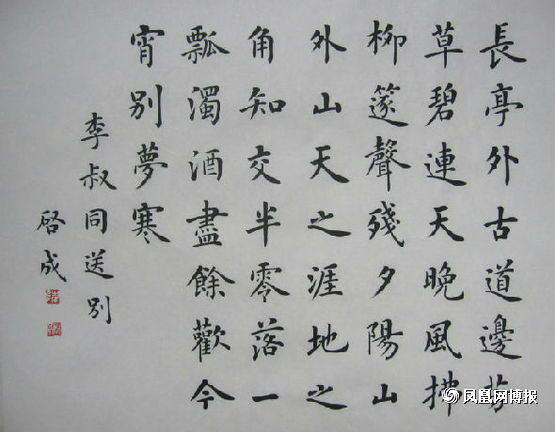 長亭外古道邊芳
草碧連天晚風拂
柳篴聲殘夕陽山
外山天之涯地之
角知交半零落一
瓢濁酒盡餘歡今
宵別夢寒
李叔同送別
啓成
凤凰网博报